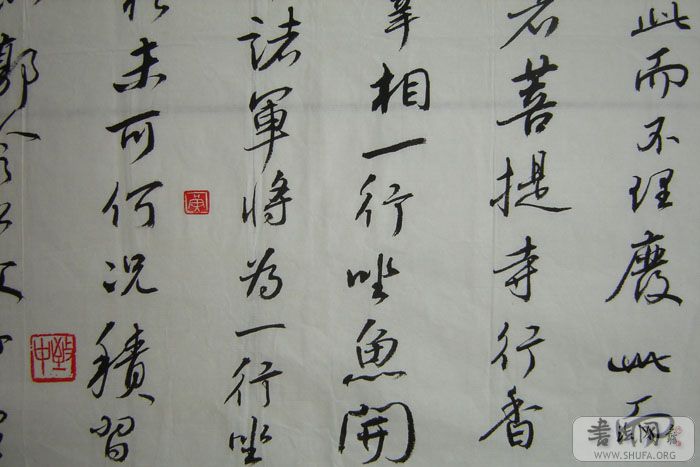 此而不理廢此而
菩提寺行香
相一行坐魚開
諸軍將為一行坐
未可何況積習
郭令公父
書法网
WWW.SHUFA.ORG